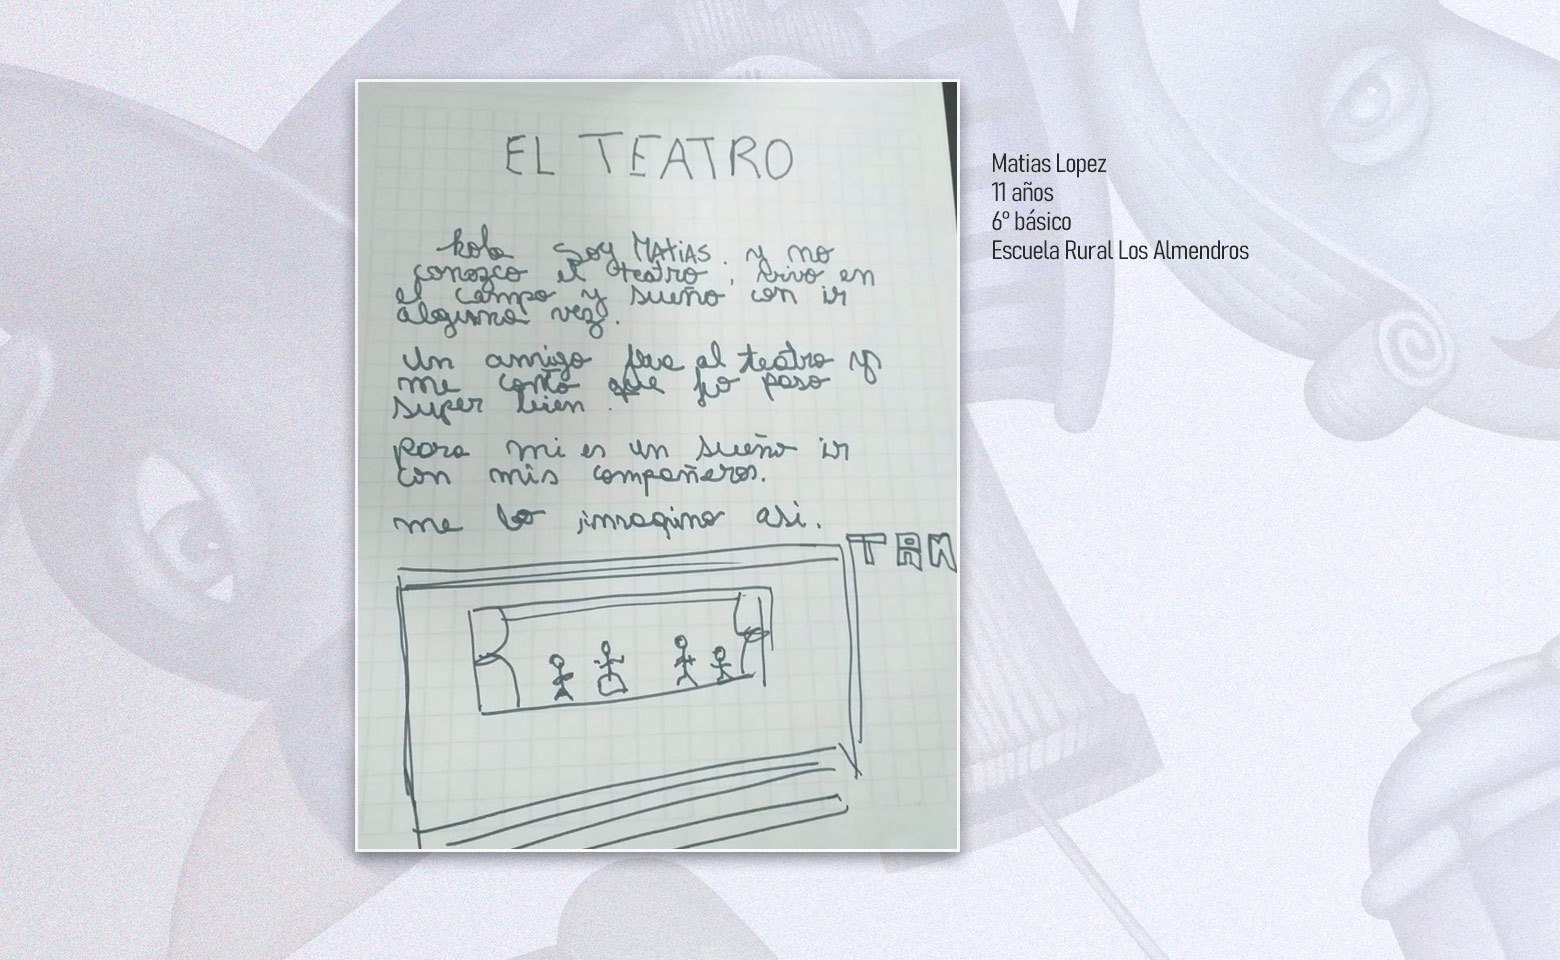 EL TEATRO
hola soy MATIAS. y no
conozco el teatro, vivo en
el campo y sueño con ir
alguna vez.
Un amigo fue al teatro y
me conto que lo paso
super bien.
para mi es un sueño ir
con mis compañeros.
me lo imagino asi.
TRM
Matias Lopez
11 años
6º básico
Escuela Rural Los Almendros